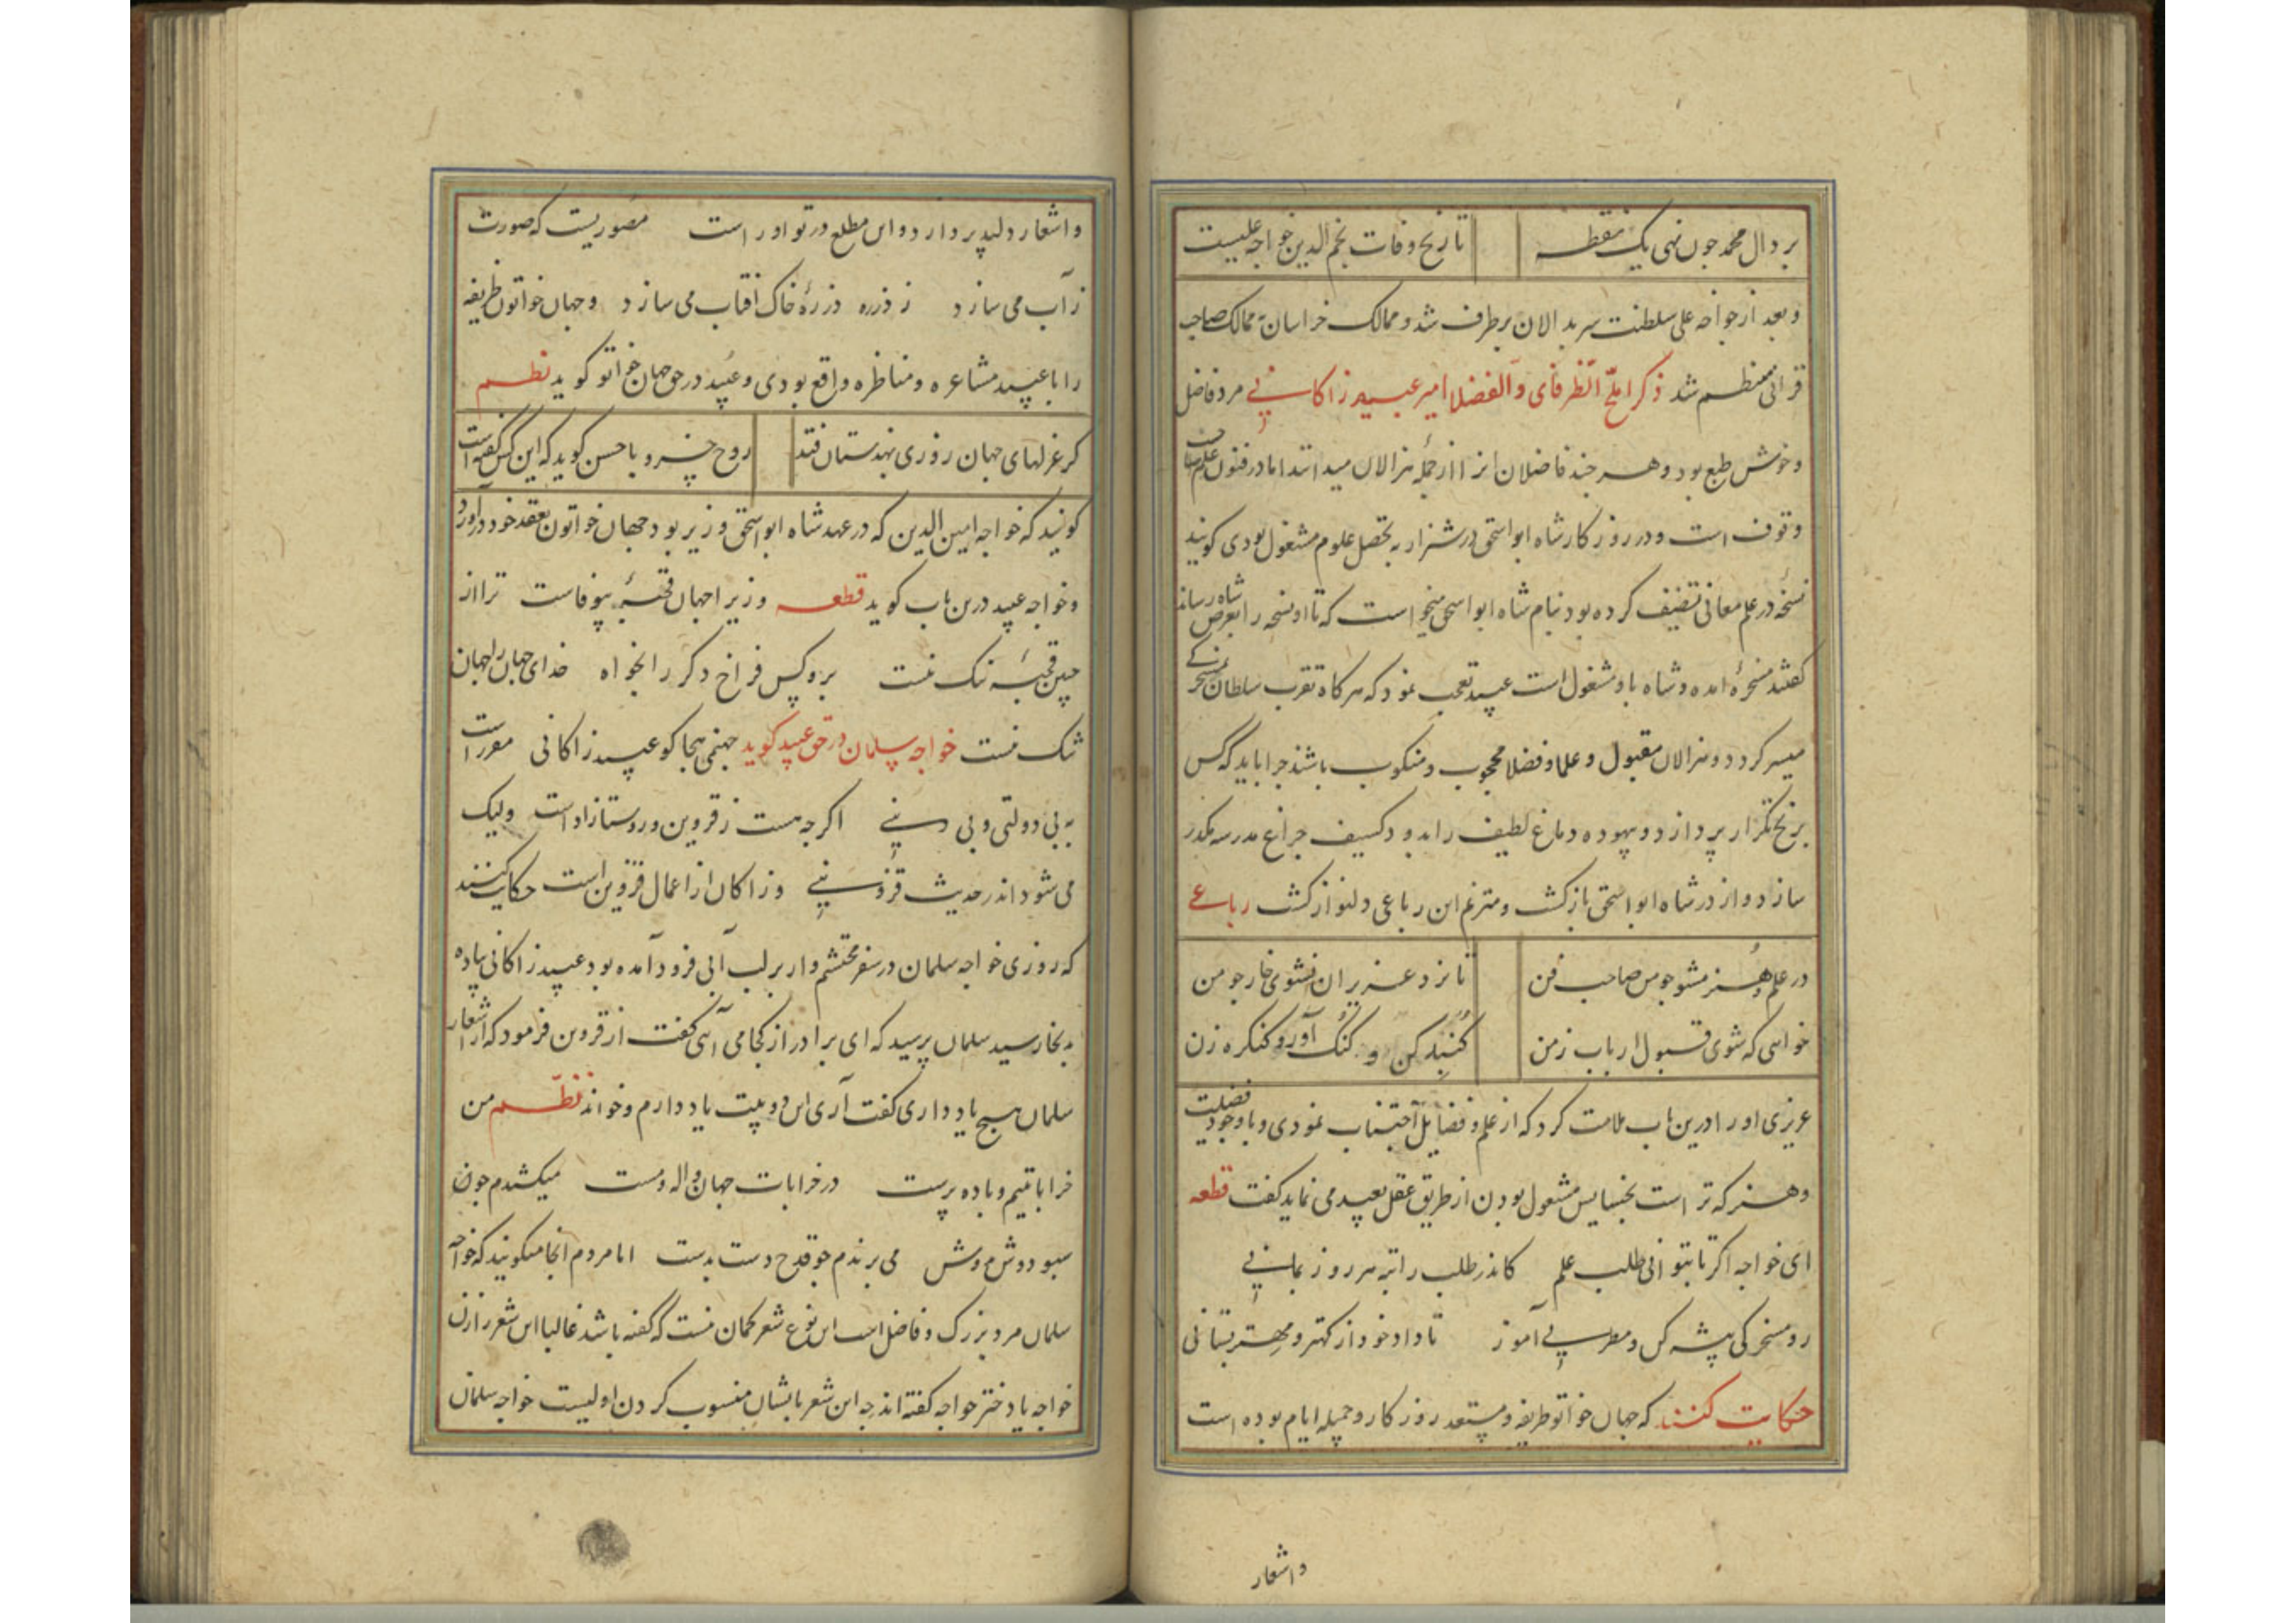 بر دال محمد چون نهی یک نقطه تاریخ وفات نجم الدین خواجه علیست
و بعد از خواجه علی سلطنت سربدالان برطرف شد و ممالک خراسان به ممالک صاحب
قرانی منظم شد ذکر املح الظرفای و الفضلا امیر عبید زاکانی مرد فاضل
و خوش طبع بود و هر چند فاضلان او را از جمله هزالان میدانند اما در فنون علم صاحب
وقوف است و در روزکار شاه ابو اسحق در شیراز به تحصیل علوم مشغول بودی کویند
نسخه در علم معانی تصنیف کرده بود بنام شاه ابو اسحق میخواست که تا او نسخه را بعرض شاه رساند
کفتند مسخرهٔ آمده و شاه باو مشغول است عبید تعجب نمود که هرکاه تقرب سلطان بمسخرکی
میسر کردد و هزالان مقبول و علما و فضلا محجوب و منکوب باشند چرا باید که کس
برنج تکرار پردازد و بیهوده دماغ لطیف را بدود کثیف چراغ مدرسه مکدر
سازد و از در شاه ابو اسحق بازکشت و مترنم این رباعی دلنواز کشت رباعی
در علم و هنر مشو چو من صاحب فن تا نزد عزیزان نشوی خار چو من
خواهی که شوی قبول ارباب زمن کنک آور و کنکره زن
عزیزی او را درین باب ملامت کرد که از علم و فضایل اجتناب نمودی و با وجود فضیلت
و هنر که تراست بخسایس مشغول بودن از طریق عقل بعید می نماید کفت قطعه
ای خواجه اکر تا بتوانی طلب علم کاندر طلب راتبه هر روز بمانی
رو مسخرکی پیشه کن و مطربی آموز تا داد خود از کهتر و مهتر بستانی
حکایت کنند که جهان خاتون ظریفه و مستعد روزکار و جمیله ایام بوده است
و اشعار
و اشعار دلپذیر دارد و این مطلع در تو او راست مصوریست که صورت
ز آب می سازد ز ذره ذرهٔ خاک آفتاب می سازد و جهان خواتون ظریفه
را با عبید مشاعره و مناظره واقع بودی و عبید در حق جهان خواتو کوید نظم
کر غزلهای جهان روزی بهندستان فتد روح خسرو با حسن کوید که این کس کفته است
کویند که خواجه امین الدین که در عهد شاه ابو اسحق وزیر بود جهان خواتون بعقد خود درآورد
و خواجه عبید درین باب کوید قطعه وزیرا جهان قحبهٔ بیوفاست ترا از
چنین قحبهٔ ننک نیست برو کس فراخ دکر را بخواه خدای جهان را جهان
تنک نیست خواجه سلمان در حق عبید کوید جهنمی هجا کو عبید زاکانی مقررست
به بی دولتی و بی دینی اکرچه نیست ز قزوین و روستازاده است ولیک
می شود اندر حدیث قزوینی و زاکان از اعمال قزوین است حکایت کنند
که روزی خواجه سلمان در سفر محتشم وار بر لب آبی فرود آمده بود عبید زاکانی پیاده
بدانجا رسید سلمان پرسید که ای برادر از کجا می آئی کفت از قزوین فرمود که از اشعار
سلمان هیچ یاد داری کفت آری این دو بیت یاد دارم و خواند نظم من
خراباتیم و باده پرست در خرابات جهان واله و مست میکشندم چون
سبو دوش بدوش می برندم چو قدح دست بدست اما مردم آنجا میکویند که خواجه
سلمان مرد بزرک و فاضل است این نوع شعر کمان نیست که کفته باشد غالبا این شعر را زن
خواجه یا دختر خواجه کفته اند چه این شعر بایشان منسوب کردن اولیست خواجه سلمان